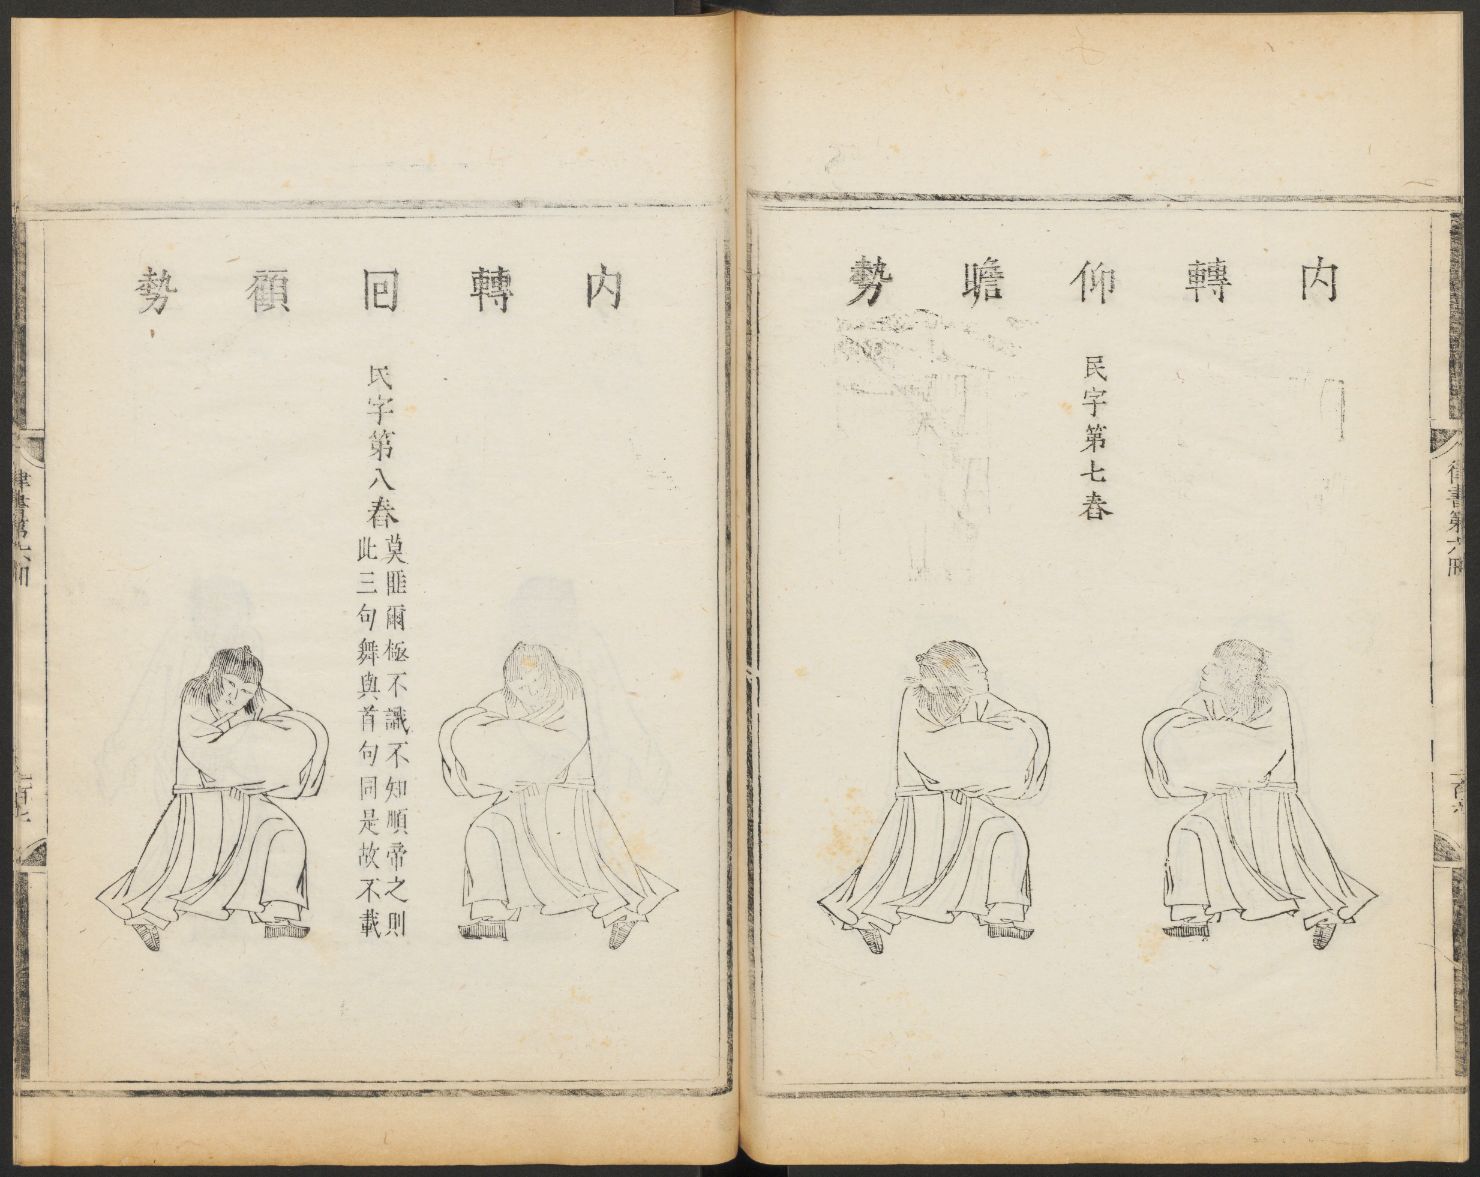 內轉仰瞻勢
民字第七舂
律書第六冊
內轉回顧勢
民字第八舂
莫匪爾極不識不知順帝之則
此三句舞與首句同是故不載
律書第六冊